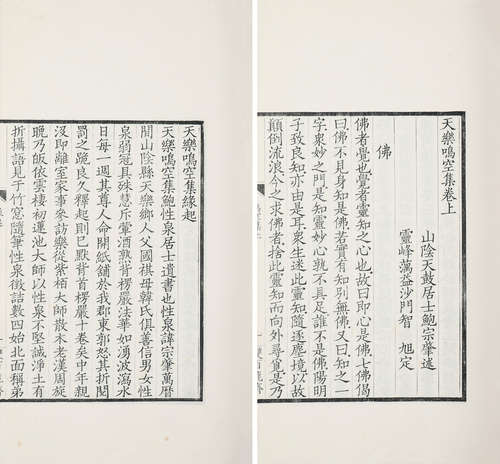 天樂鳴空集卷上
山陰天鼓居士鮑宗肇述
靈峰蕅益沙門智旭定
佛
佛者覺也覺者靈知之心也故曰即心是佛七佛偈
曰佛不見身知是佛若實有知別無佛又曰知之一
字衆妙之門是知靈妙心孰不具足誰不是佛陽明
子致良知亦由是耳衆生迷此靈知隨逐塵境以故
顛倒流浪今之求佛者捨此靈知而向外尋覓是乃
天樂鳴空集緣起
天樂鳴空集鮑性泉居士遺書也性泉諱宗肇萬曆
間山陰縣天樂鄉人父國棋母韓氏俱善信男女性
泉弱冠具殊慧斥葷酒熟背楞嚴法華如湧波瀉水
日每一週其尊人命開紙鋪於我郡東郭怒其折閱
罰之跪良久釋起則已默背首楞嚴十卷矣中年親
沒即離室家事來訪樂從紫栢大師散木老漢周旋
晚乃皈依雲棲初蓮池大師以性泉不堅誠淨土有
折攝語見于竹窓隨筆性泉徵詰數四始北面稱弟